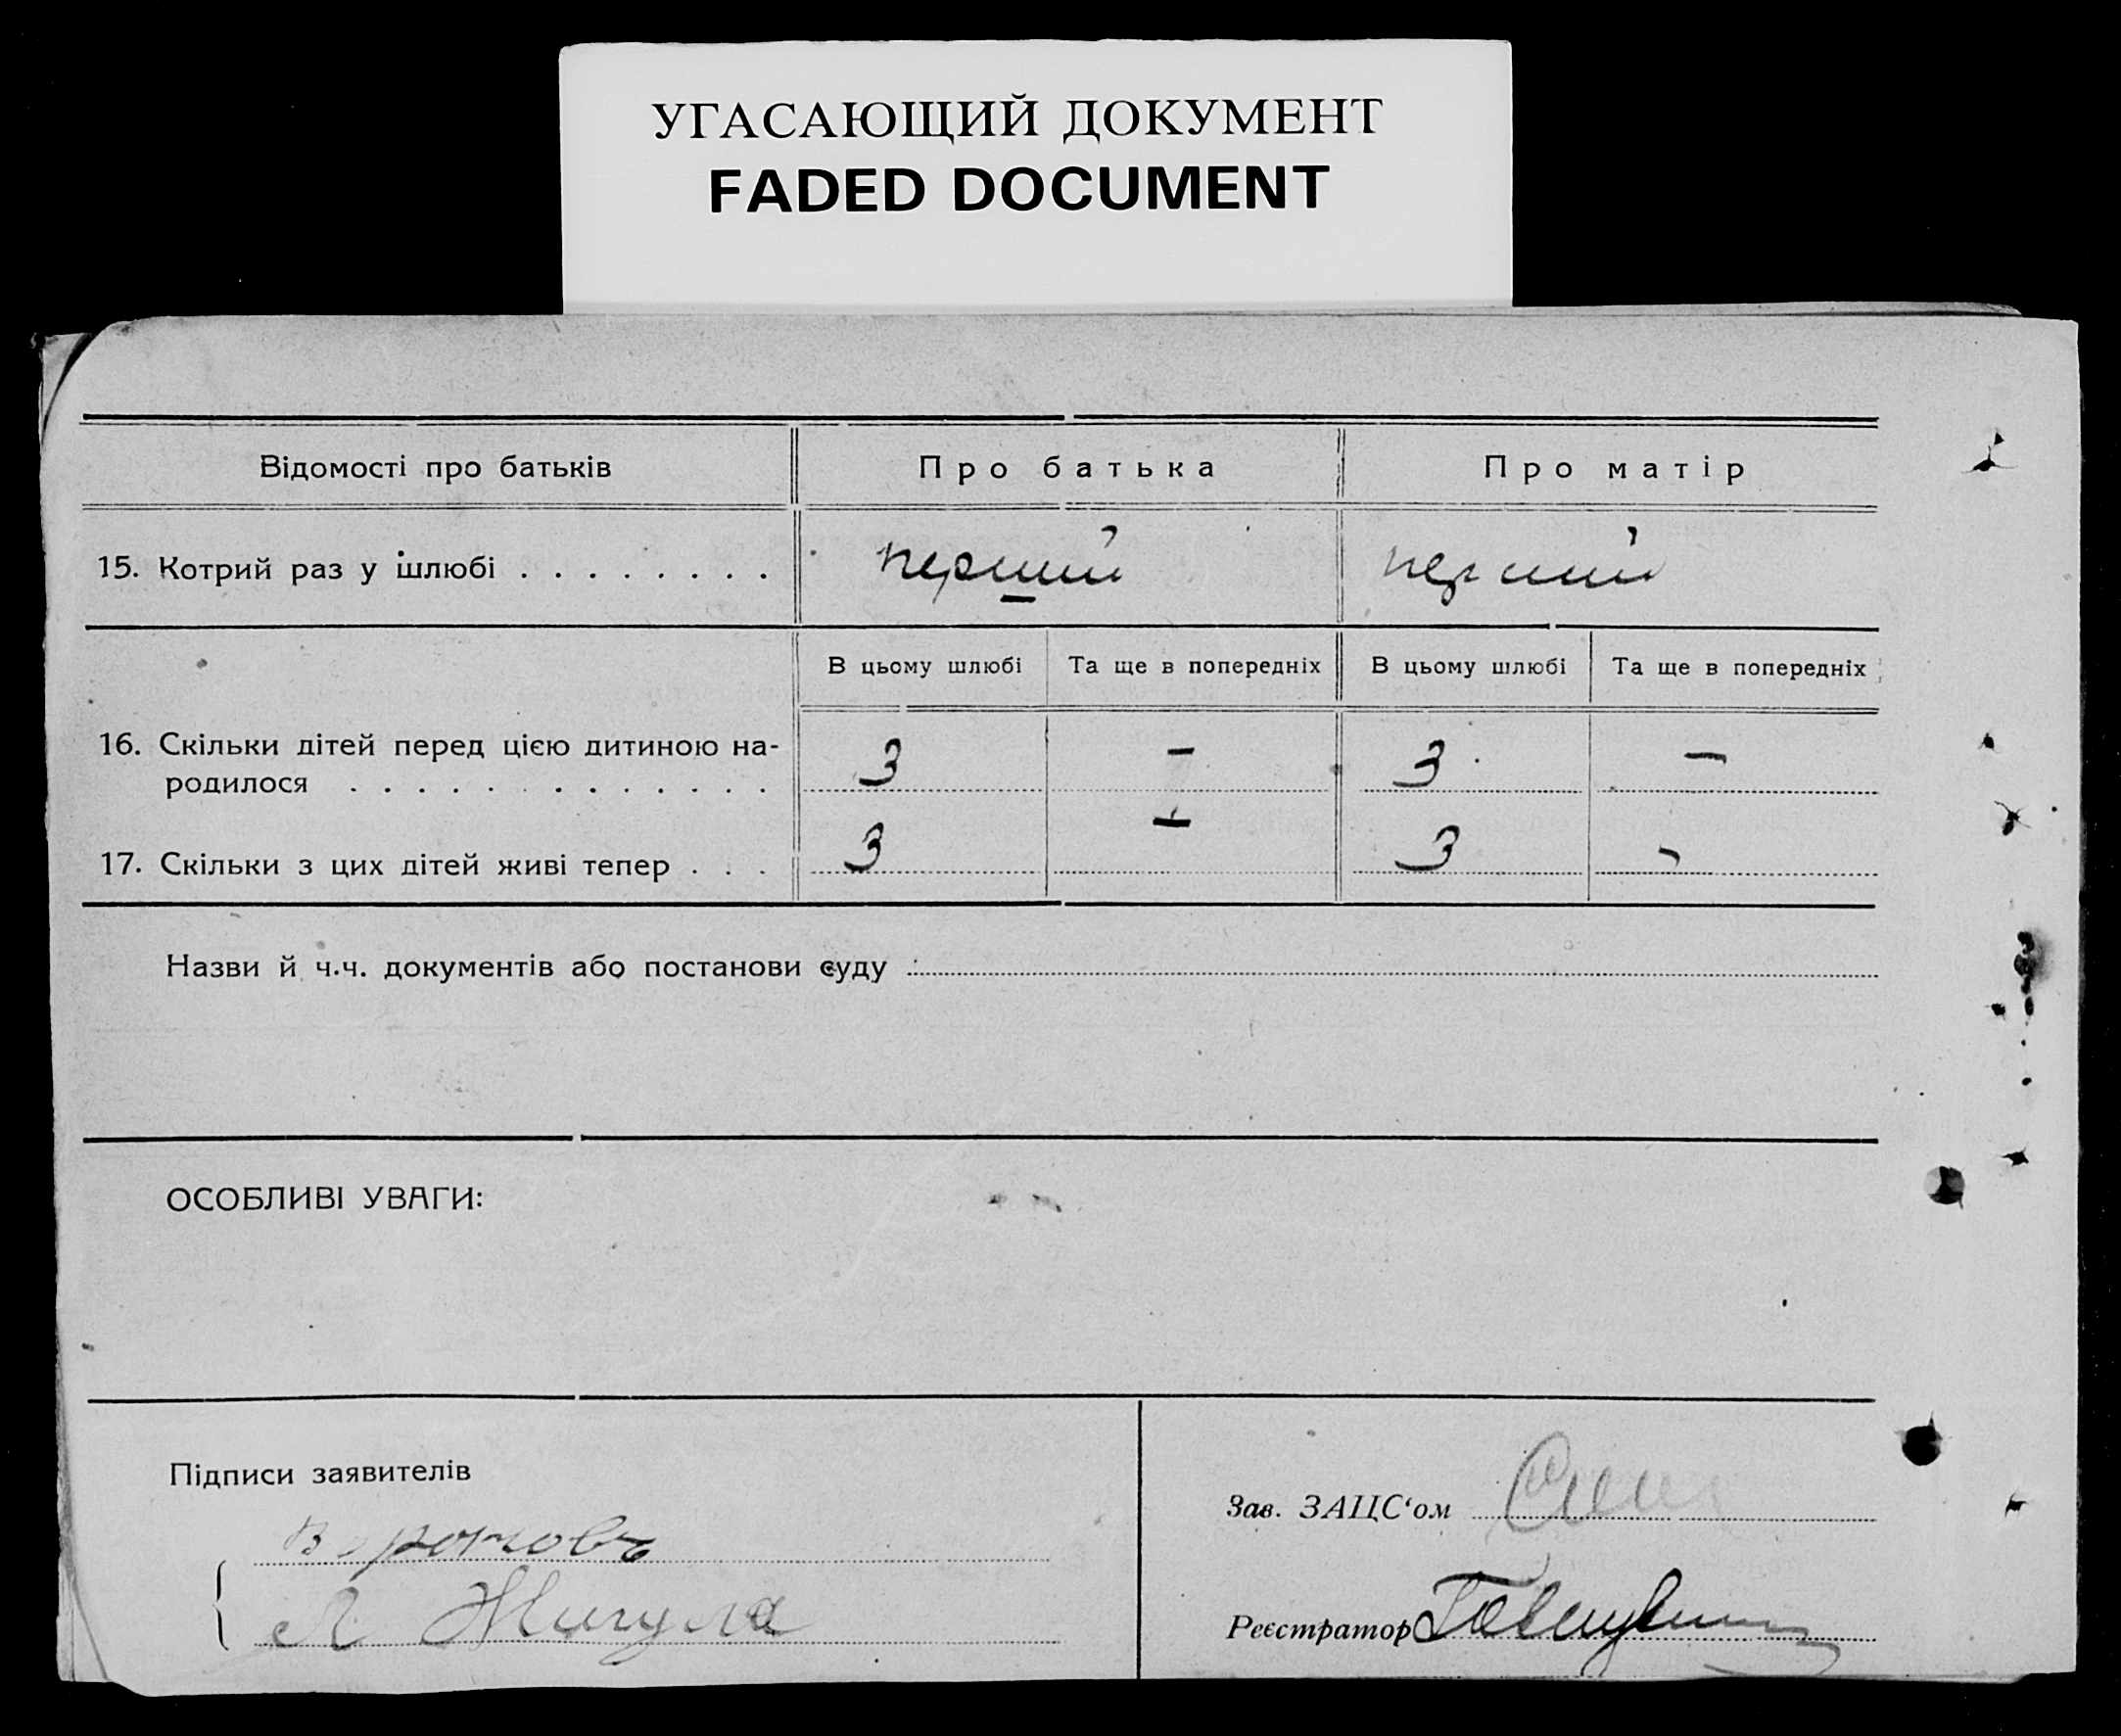 УГАСАЮЩИЙ ДОКУМЕНТ
FADED DOCUMENT
Відомості про батьків
Про батька
Про матір
15. Котрий раз у шлюбі
перший
перший
В цьому шлюбі
Та ще в попередніх
В цьому шлюбі
Та ще в попередніх
16. Скільки дітей перед цією дитиною на-
родилося
3 - 3 -
17. Скільки з цих дітей живі тепер
3 - 3 -
Назви й ч.ч. документів або постанови суду
ОСОБЛИВІ УВАГИ:
Підписи заявителів
Зав. ЗАЦС‘ом
Л Жигула
Реєстратор